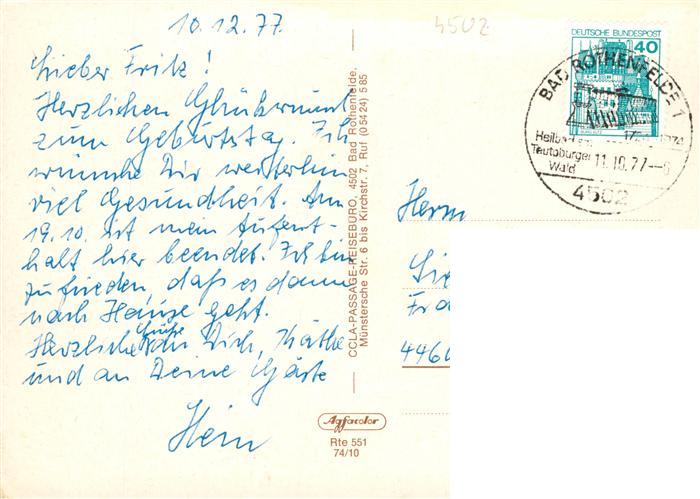 10.12.77
4502
Lieber Fritz!
Herzlichen Glückwunsch
zum Geburtstag. Ich
wünsche Dir weiterhin
viel Gesundheit. Am
19.10. ist mein Aufent-
halt hier beendet. Ich bin
zufrieden, daß es dann
nach Hause geht.
Herzliche Grüße an Dich, Käthe
und an Deine Gäste
Hein
CCLA-PASSAGE-REISEBÜRO, 4502 Bad Rothenfelde.
Münstersche Str. 6 bis Kirchstr. 7. Ruf (05424) 585
Agfacolor
Rte 551
74/10
DEUTSCHE BUNDESPOST
40
BAD ROTHENFELDE 1
Heilbad am
Teutoburger
Wald
11.10.77-6
4502
Herrn
446